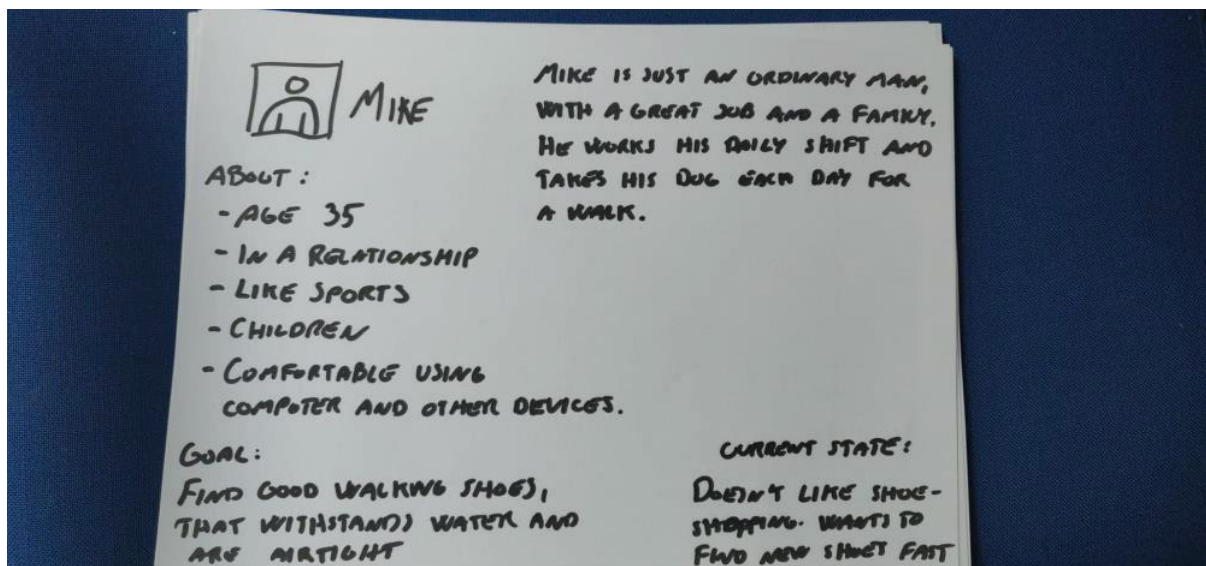 MIKE
ABOUT:
- AGE 35
- IN A RELATIONSHIP
- LIKE SPORTS
- CHILDREN
- COMFORTABLE USING
COMPUTER AND OTHER DEVICES.
MIKE IS JUST AN ORDINARY MAN,
WITH A GREAT JOB AND A FAMILY.
HE WORKS HIS DAILY SHIFT AND
TAKES HIS DOG EACH DAY FOR
A WALK.
GOAL:
FIND GOOD WALKING SHOES,
THAT WITHSTANDS WATER AND
ARE AIRTIGHT
CURRENT STATE:
DOESN'T LIKE SHOE-
SHOPPING. WANTS TO
FIND NEW SHOES FAST